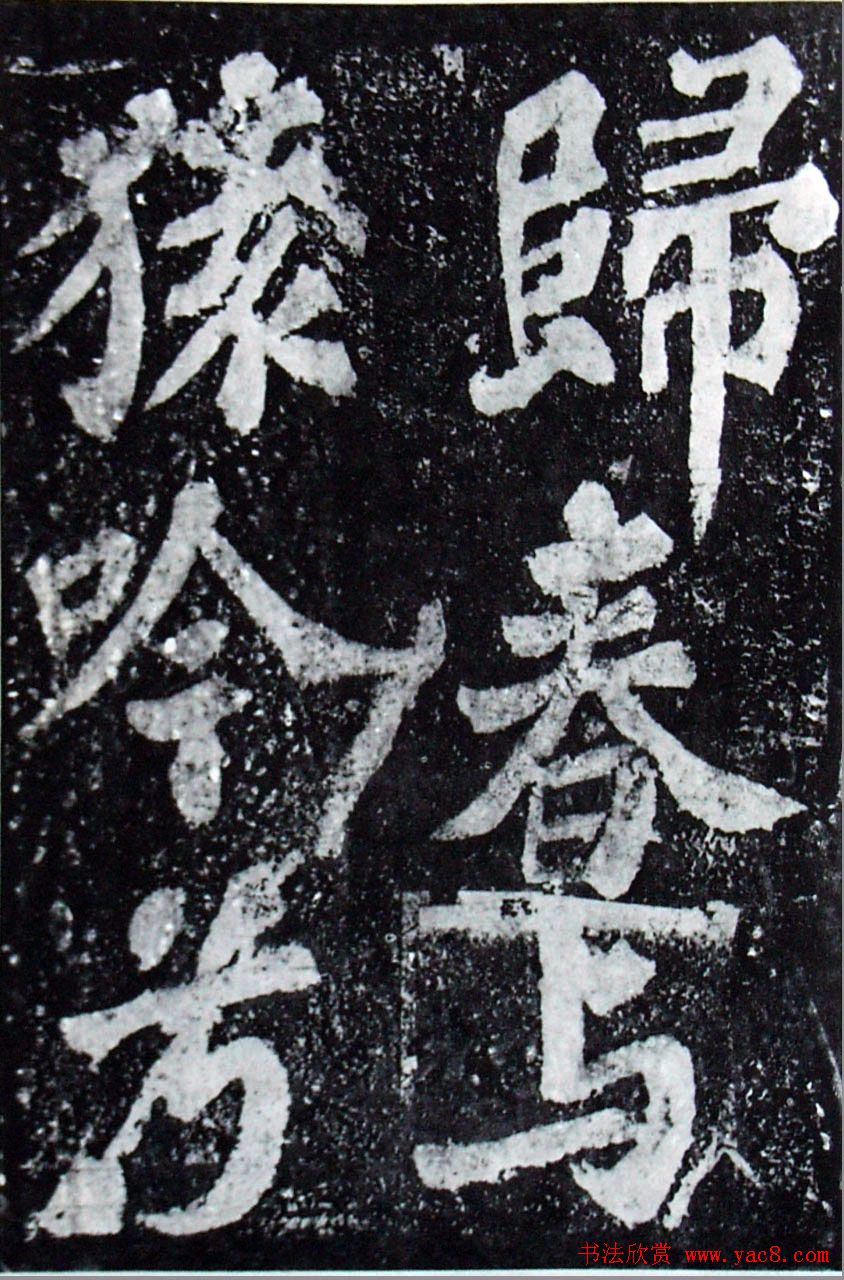 歸春与
猿吟兮
书法欣赏 www.yac8.com